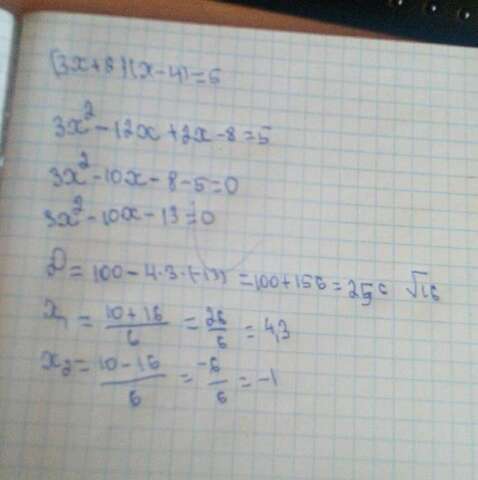 (3x+2)(x-4)=5
3x²-12x+2x-8=5
3x²-10x-8-5=0
3x²-10x-13=0
D=100-4·3·(-13)=100+156=256 √16
x₁=\frac{10+16}{6}=\frac{26}{6}=4,3
x₂=\frac{10-16}{6}=\frac{-6}{6}=-1